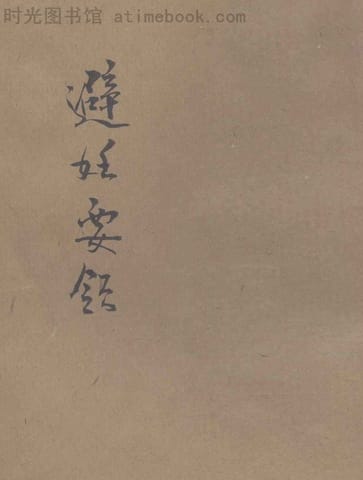 时光图书馆 atimebook.com
避妊要领